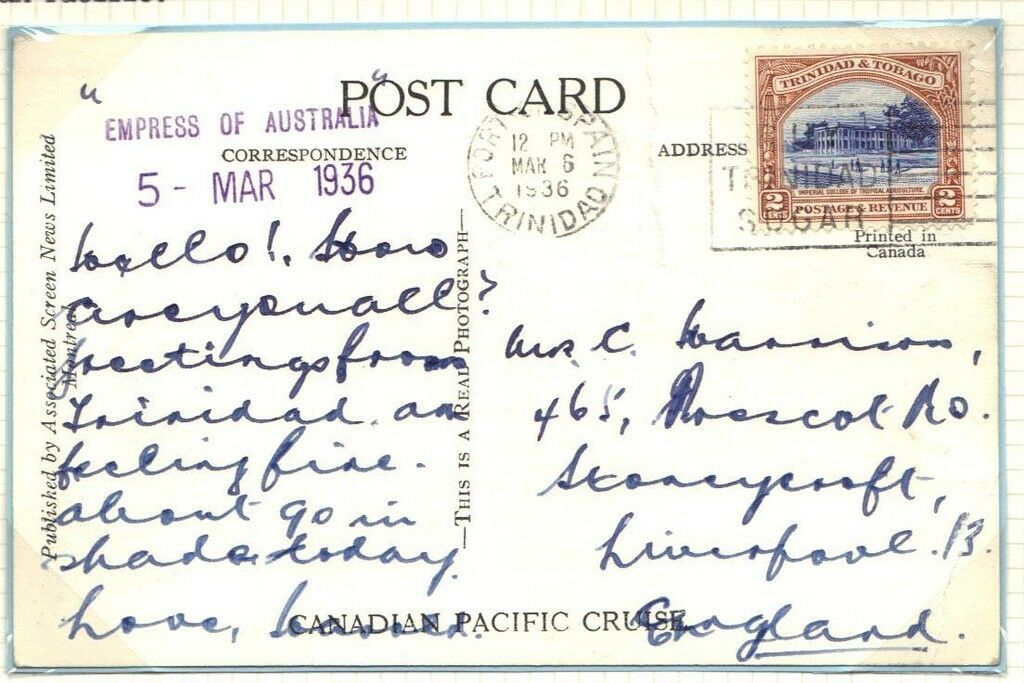 POST CARD
" EMPRESS OF AUSTRALIA "
CORRESPONDENCE
5 - MAR 1936
PORT OF SPAIN
12 PM
MAR 6
1936
TRINIDAD
ADDRESS
TRINIDAD & TOBAGO
IMPERIAL COLLEGE OF TROPICAL AGRICULTURE.
2 CENTS POSTAGE & REVENUE 2 CENTS
TRINIDAD
SUGAR
Printed in
Canada
Published by Associated Screen News Limited
Montreal
—THIS IS A REAL PHOTOGRAPH—
Hello!. How
are you all?
Greetings from
Trinidad. am
feeling fine.
about 90 in
shade today.
Love,
Mr. C. Harrison,
465, Prescot Rd.
Stoneycroft,
Liverpool. 13.
England.
CANADIAN PACIFIC CRUISE